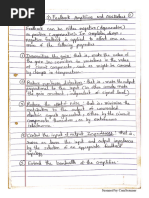 Feedback Amplifiers and Oscillators
Feedback can be either negative (degenerative)
or positive (regenerative). In amplifier design
negative feedback is applied to effect one or
more of the following properties
Desensitize the gain; that is, make the value of the
gain less sensitive to
of circuit components, such as
by change in temperature.
Reduce nonlinear distortion; that is, make the output
proportional to the input
the gain constant, independent of signal level.
Reduce the effect of noise; that is, minimize the
contribution to the output of unwanted electric
signals generated, either by the circuit
components themselves, or by
interference.
Control the input and output impedances; that is,
raise or lower the input and output impedances
by the selection of
topology.
Extend the bandwidth of the amplifier.
Scanned by CamScanner